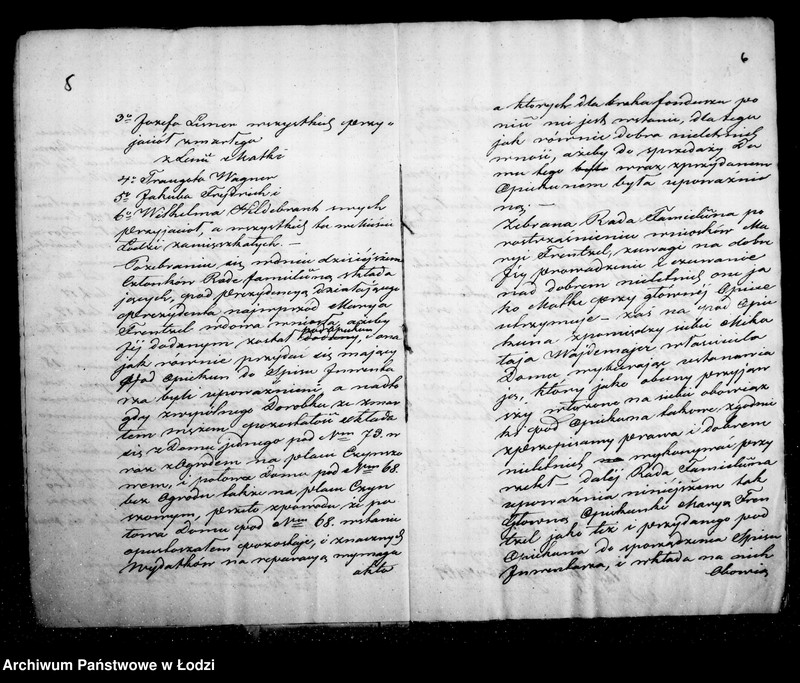 5
3o Jozefa Lemer wszystkich przy-
jaciół zmarłego
z Linii Matki
4o Traugota Wagner
5o Jakuba Frejdrich i
6o Wilhelma Hildebrant innych
przyjaciół, a wszystkich tu w Mieście
Łodzi zamieszkałych. –
Pozebraniu się w dniu dzisiejszem
Członków Rade familijną składa
jących, pod prezydencyą działającego
Prezydenta najmprzód Maryanna
Frentzel wdowa wniosła, ażeby
jej dodanym został podopiekun
jak równie przydać się mający
Pod Opiekun do Spisu Inwenta
rza byli upoważnieni a nadto
gdy z wspólnego Dorobku ze zmar
łem mężem pozostałość składa
się z Domu jednego pod Nrem 73. w
raz z Ogrodem na placu Czynszo
wem, i połowe Domu pod Nrem 68.
bez Ogrodu także na placu Czyn
szowym, przeto z powodu że po
łowa domu pod Nrem 68. w stanie
opustoszałem pozostaje, i znacznych
Wydatków na reparacyą wymaga
a któ
6
a których dla braku funduszu po
nieść nie jest wstanie, dla tego
jak równie dobra nieletnich
wnosi, ażeby do sprzedaży Do
mu tego wraz z przydanem
Opiekunem była upoważnio
ną. –
Zebrana Rada Familijna po
roztrząśnieniu wniosków Ma
ryi Frentzel, z uwagi na dobre
Jej prowadzenie i czuwanie
nad dobrem nieletnich onę ja
ko Matkę przy głównej Opiece
utrzymuje – zaś na Pod Opie
kuna z pomiędzy siebie Miko
łaja Wajdemajer właściciela
Domu, wykonując ustanawia
ją, który jako obecny przyjąw
szy włożone na siebie obowiąz
ki pod Opiekuna takowe zgodnie
z przepisamy prawa i dobrem
nieletnich wykonywać przy
rzekł – dalej Rada Familijna
upoważnia niniejszem tak
Główną Opiekunkę Maryą Fren
tzel jako też i przydanego pod
Opiekuna do sporządzenia Spisu
Inwentarza, i wkłada na nich
Obowią
Archiwum Państwowe w Łodzi